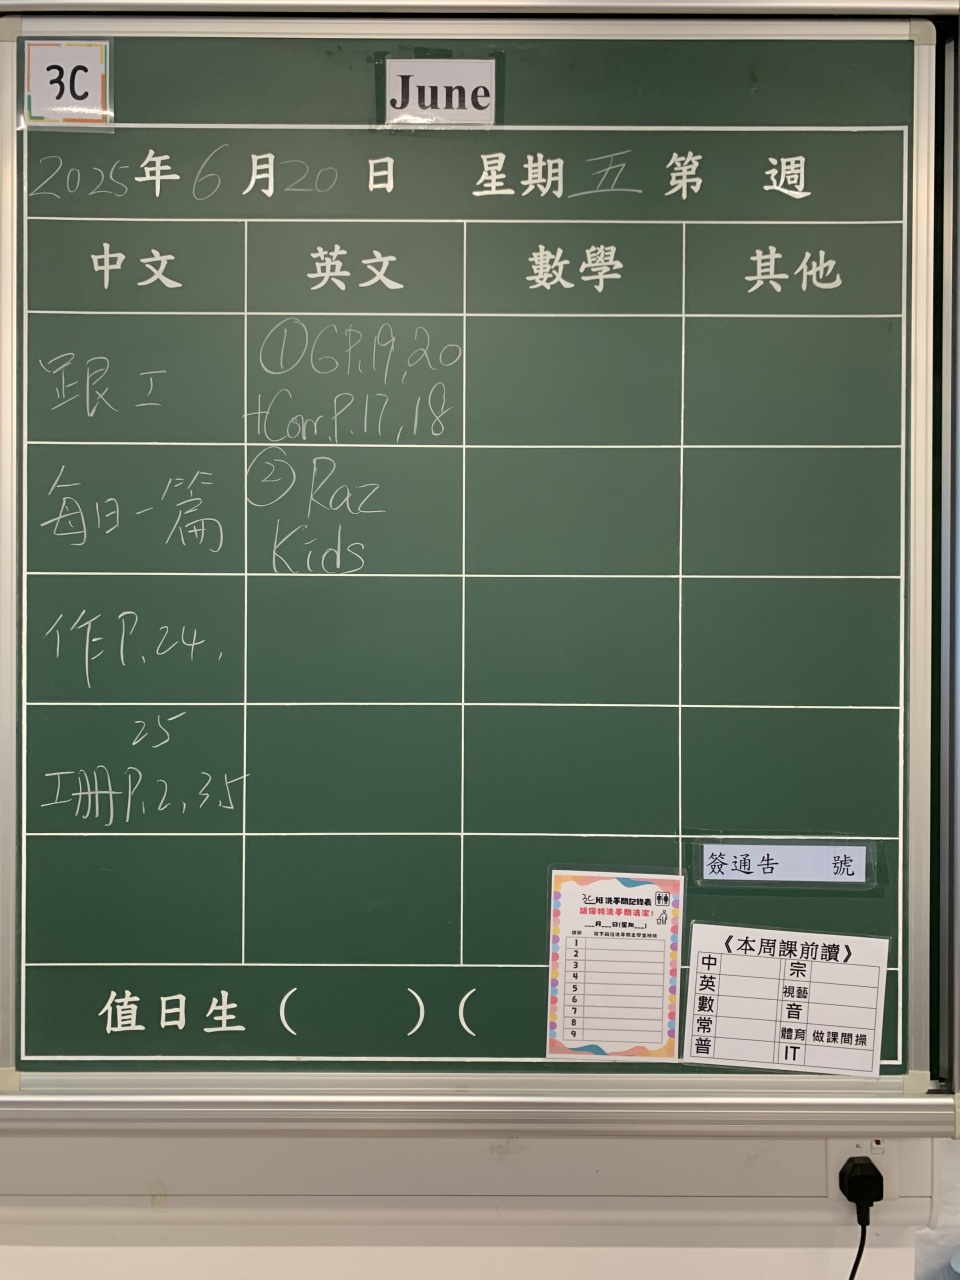 3C
June
2025年6月20日 星期五第 週
中文 英文 數學 其他
跟工
①GP.19,20
+Corr.P.17,18
每日一篇
②Raz
Kids
作P.24,
25
工冊P.2,3,5
簽通告 號
3C班洗手間記錄表
請保持洗手間清潔!
___月___日(星期___)
1
2
3
4
5
6
7
8
9
《本周課前讀》
中 宗
英 視藝
數 音
常 體育 做課間操
普 IT
值日生( )(